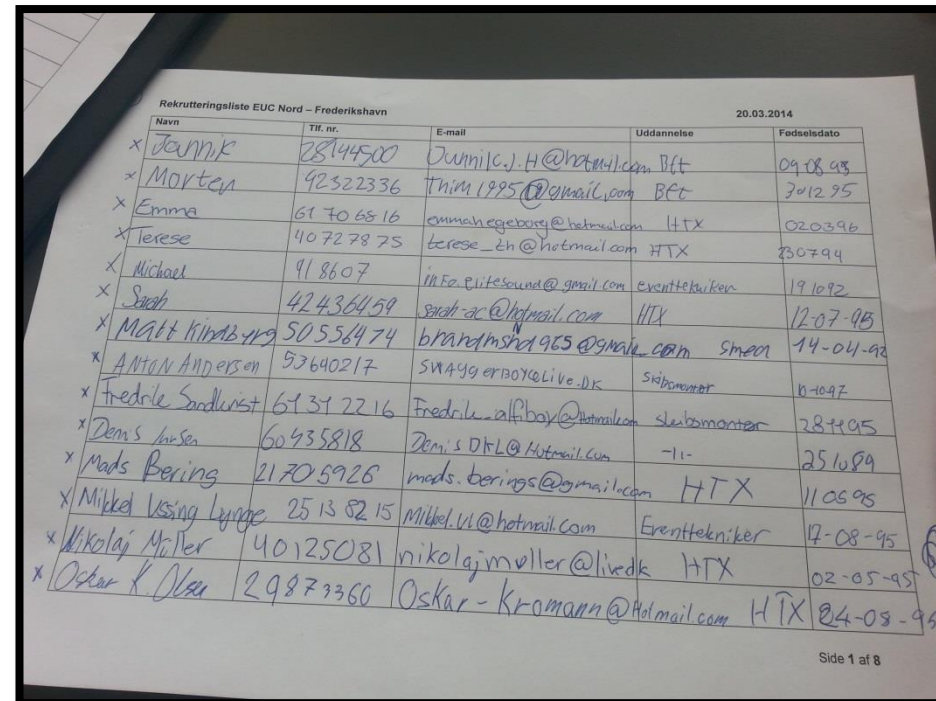 Rekrutteringsliste EUC Nord – Frederikshavn 20.03.2014
Navn Tlf. nr. E-mail Uddannelse Fødselsdato
x Jannik 28144500 Bft 09-08-95
x Morten 92322336 Thim1995@gmail.com Bft 301295
x Emma 61 70 68 16 emmahegeborg@hotmail.com HTX 020396
x Terese 40 72 78 75 terese_th@hotmail.com HTX 230794
x Michael 918607 info.elitesound@gmail.com eventtekniker 191092
x Sarah 42436459 sarah-ac@hotmail.com HTX 12-07-95
x Matt Kindbyrg 50556474 smed 14-04-92
x ANTON ANDersen 53640217 SWAggerBOY@Live.DK Skibsmontør
x Fredrik 61 31 22 16 Fredrik_alfiboy@Hotmail.com skibsmontør 281195
x Denis 60435818 Denis DKL@Hotmail.com -11- 251089
x Mads Bering 21705926 mads.berings@gmail.com HTX 110595
x Mikkel Ussing Lynge 25 13 82 15 Mikkel.ul@hotmail.com Eventtekniker 17-08-95
x Nikolaj Müller 40125081 nikolajmøller@livedk HTX 02-05-95
x Oskar K. Olsen 29873360 Oskar-Kromann@Hotmail.com HTX 24-08-95
Side 1 af 8